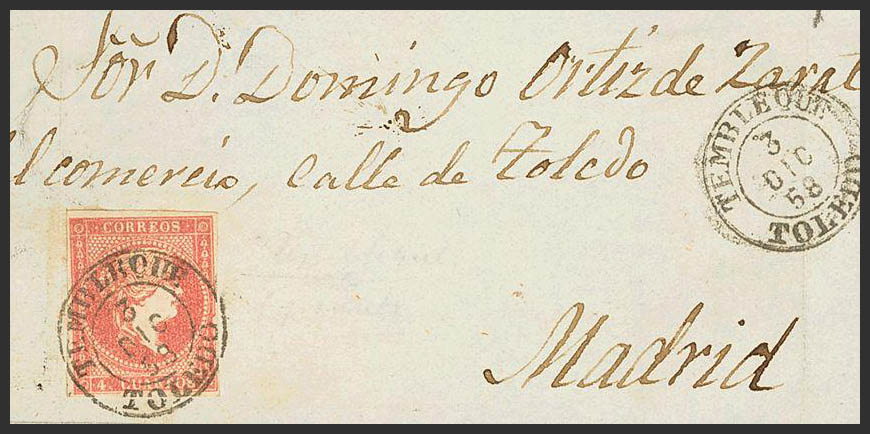 Sõr D. Domingo Ortiz de Zarat
l comercio, calle de Toledo
Madrid
TEMBLEQUE
3 DIC 58
TOLEDO
CORREOS
TEMBLEQUE
3 DIC 58
TOLEDO
4